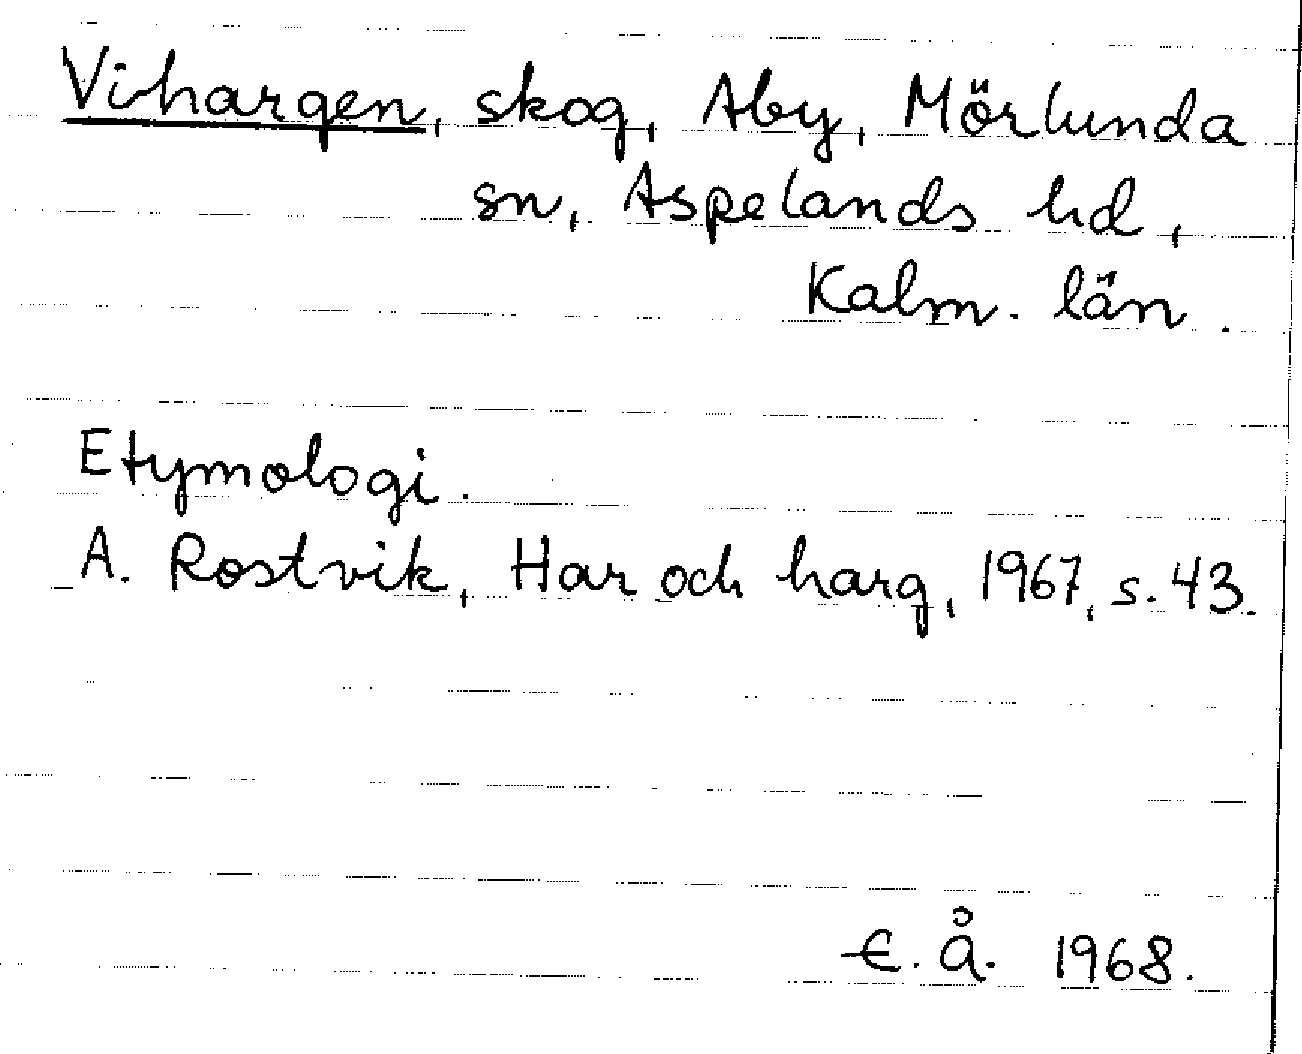 Vihargen, skog, Aby, Mörlunda
sn, Aspelands hd,
Kalm. län.
Etymologi.
A. Rostvik, Har och harg, 1967, s. 43.
E. Å. 1968.